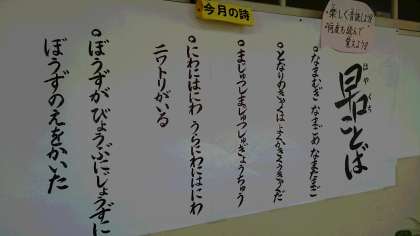 今月の詩
・楽しく音読しよう
・何度も読んで
覚えよう
早口ことば
はやくち
○なまむぎ なまごめ なまたまご
○となりのきゃくは よくかきくうきゃくだ
○まじゅつしまじゅつしゅぎょうちゅう
○にわにはにわ うらにわにはにわ
ニワトリがいる
○ぼうずがびょうぶにじょうずに
ぼうずのえをかいた